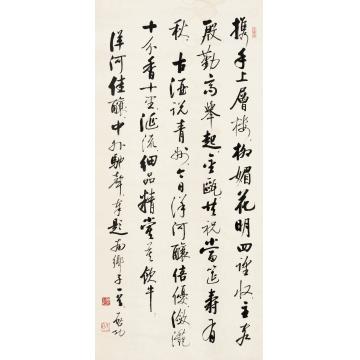 携手上層樓柳媚花明四望收主客
殷勤高舉起金甌共祝當筵壽有
秋古酒説青州今日洋河釀倍優瀲灔
十分香十里涎流細品精嘗莫飲牛
洋河佳釀中外馳聲奉題南鄉子一首啟功